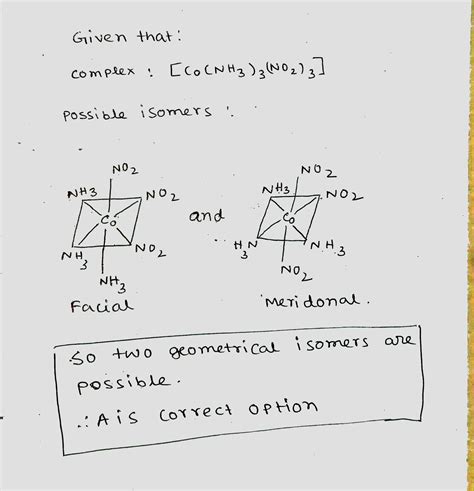 Given that:
complex : [Co(NH3)3(NO2)3]
possible isomers :
NO2 NO2
NH3 NO2 NH3 NO2
Co and Co
NH3 NO2 H3N NH3
NH3 NO2
Facial Meridonal.
So two geometrical isomers are
possible.
∴ A is correct option